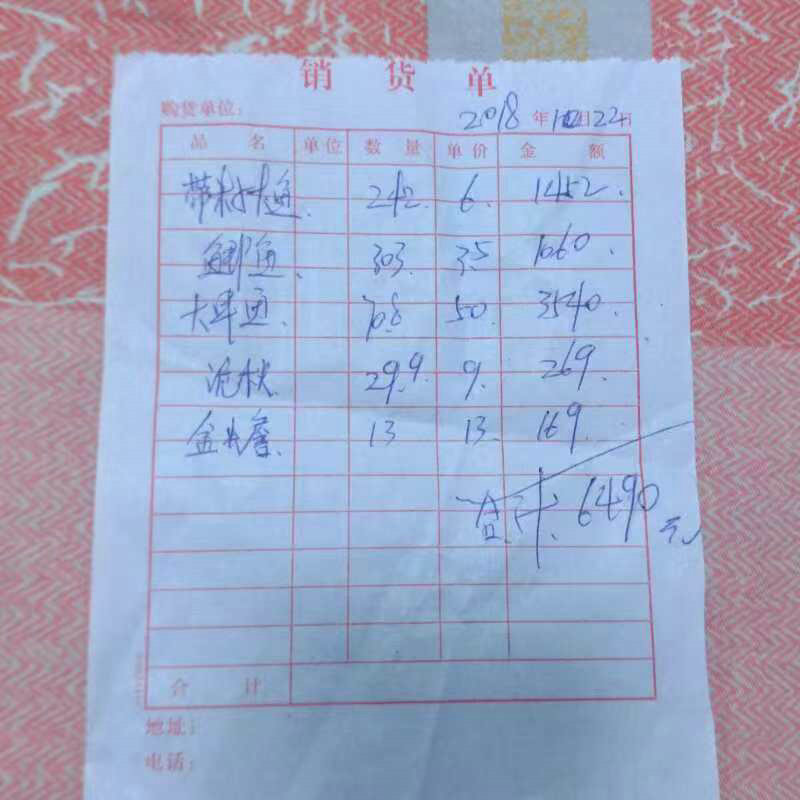 销 货 单
购货单位: 2018 年 月 22 日
品 名 单位 数 量 单价 金 额
242. 6. 1452.
鲫鱼 303 3.5 1060.
70.8 50. 3540.
29.9 9. 269.
13 13. 169.
合计. 6490元
合 计
地址:
电话: